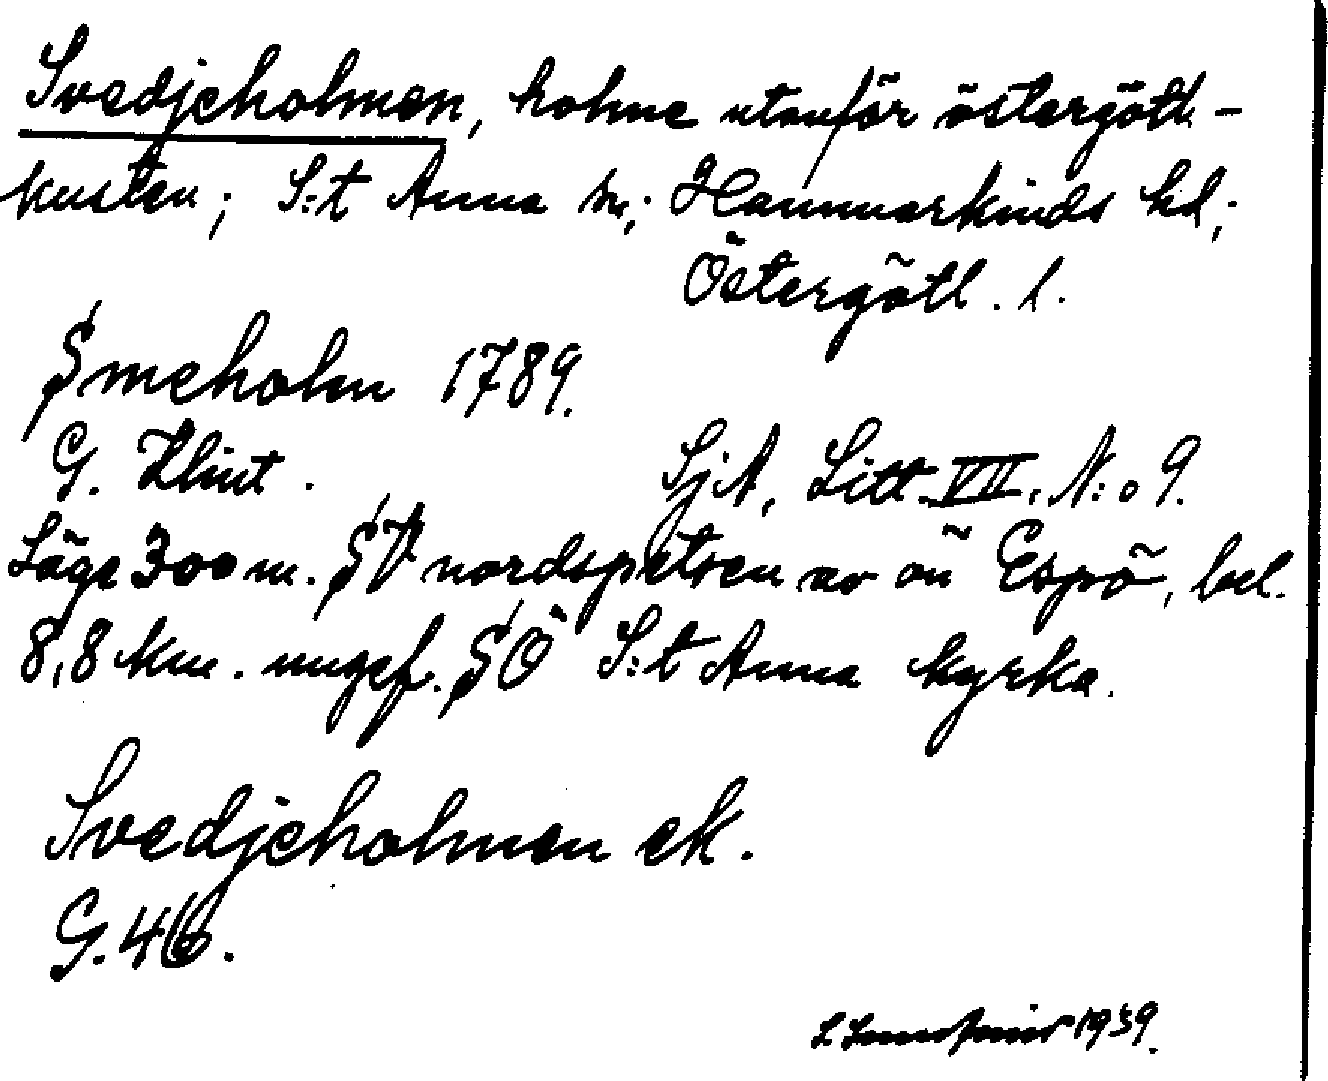 Svedjeholmen, holme utanför östergötl.-
kusten; S:t Anna sn; Hammarkinds hd;
Östergötl. l.
Smeholm 1789.
G. Klint. SjA, Litt. VII, N:o 9.
Läge 300 m. SV nordspetsen av ön Espö, bel.
8,8 km. ungef. SÖ S:t Anna kyrka.
Svedjeholmen ek.
G. 46.
1939.